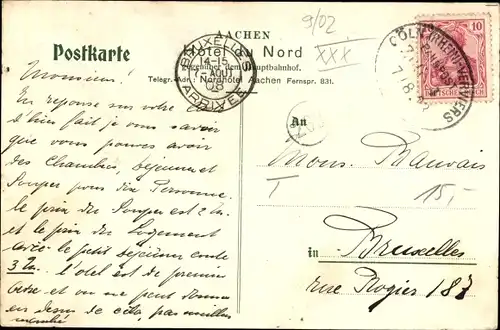 AACHEN
Postkarte
Hotel du Nord
gegenüber dem Hauptbahnhof.
Telegr.-Adr.: Nordhotel Aachen Fernspr. 831.
9/02
XXX
BRUXELLES
14-15
7 AOUT
08
ARRIVÉE
CÖLN (RHEIN) VERVIERS
7. 8.
10
DEUTSCHES REICH
Monsieur!
En reponse sur votre
je vous savoir
que vous pouvez avoir
des Chambres, dejeuner et
Souper pour dix Personne.
le prix des Souper est 2 M.
et le prix des Logement
avec le petit dejeuner coute
3 M. l'otel est de premier
et on ne peut
en de cela, pas
An
Mons. Mauvais
T
15,-
in Bruxelles
rue Rogier 187